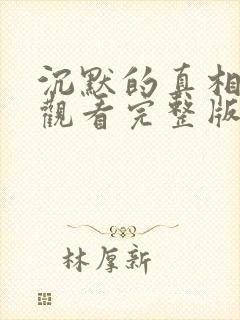 沉默的真相
觀看完整版
林厚新